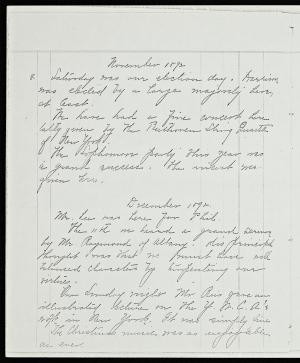 November 1892
8 Saturday was our election day. Harrison
was elected by a large majority here,
at least.
We have had a fine concert here
lately given by the Beethoven String Quartette
of New York.
The Sophomore party this year was
a grand success. The concert was
given here.
December 1892.
Mr. Lee was here for Phil.
The 11th we heard a grand sermon
by Mr. Raymond of Albany. His principal
thought was that we must
characters by
virtues.
One Sunday night Mr. gave an
illustrated lecture on the Y. M. C. A's
work in New York. It was simply fine
The Christmas was as enjoyable
as ever.